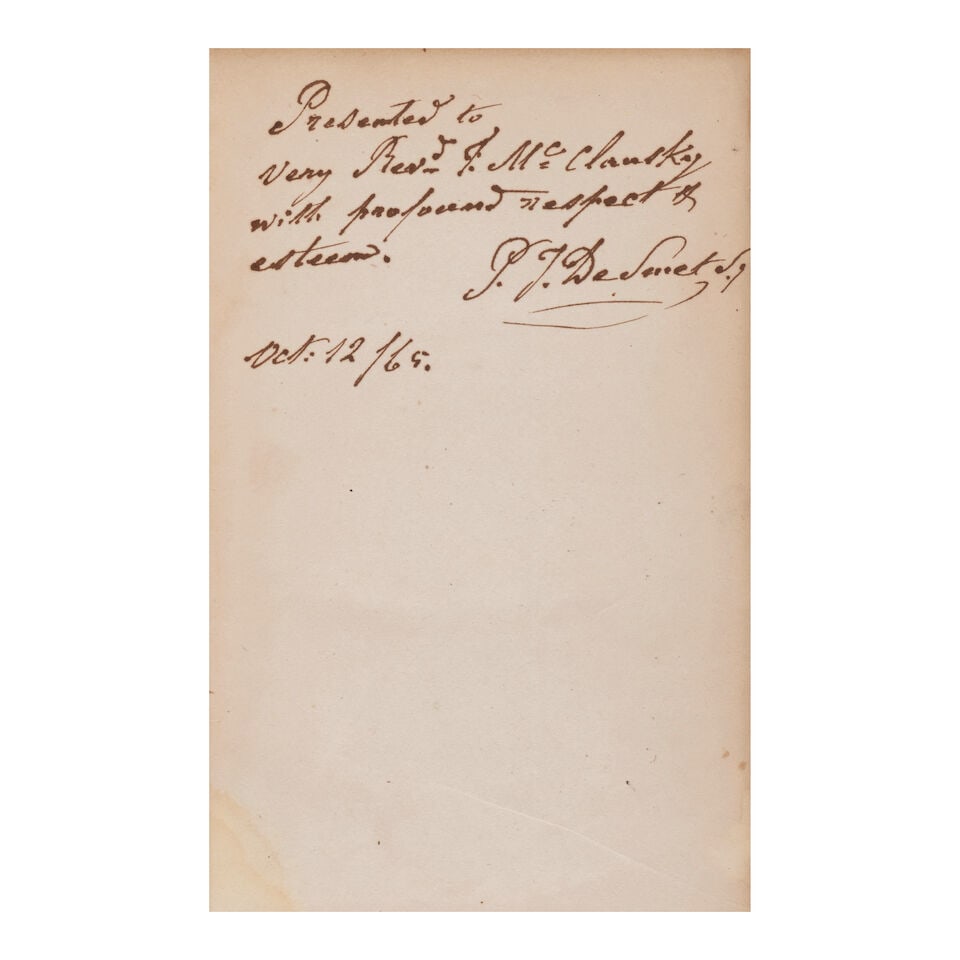 Presented to
very Revd F. Mc Clausky
with profound respect &
esteem.
P. J. De Smet S.J
Oct: 12/65.